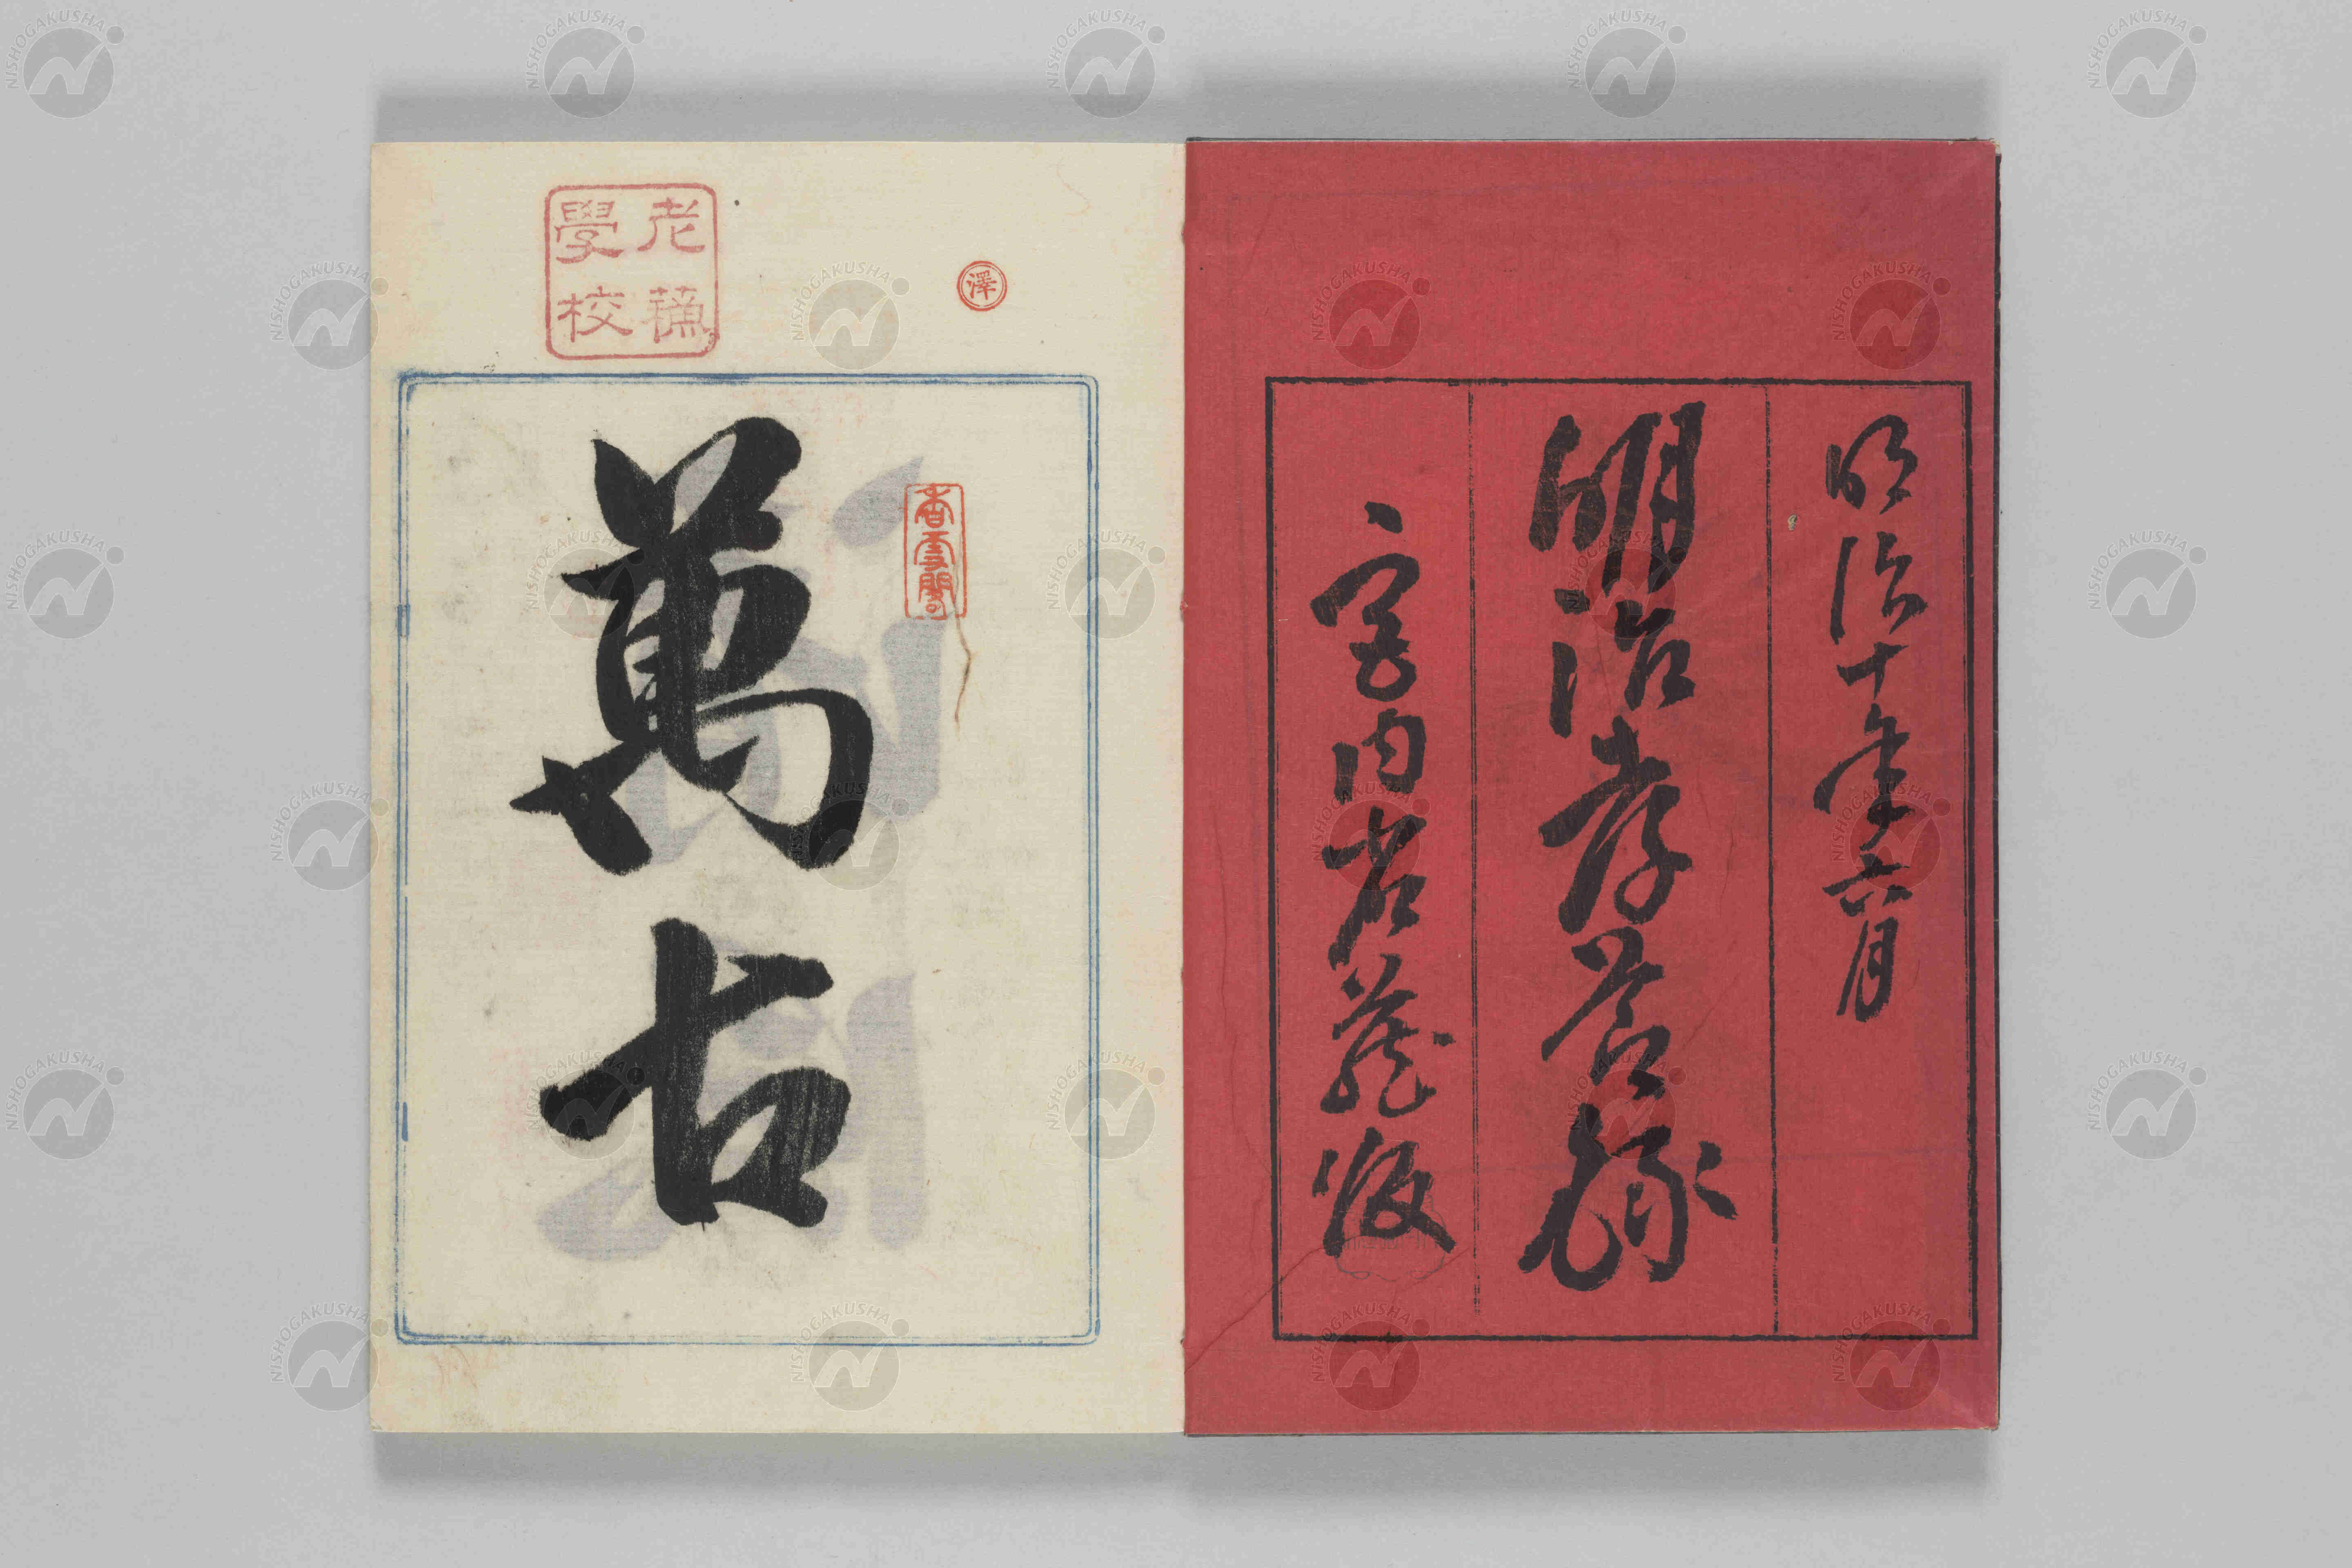 明治十年六月
明治孝節録
宮内省蔵版
澤
香雪閣
萬古
老蘓
學校
NISHOGAKUSHA